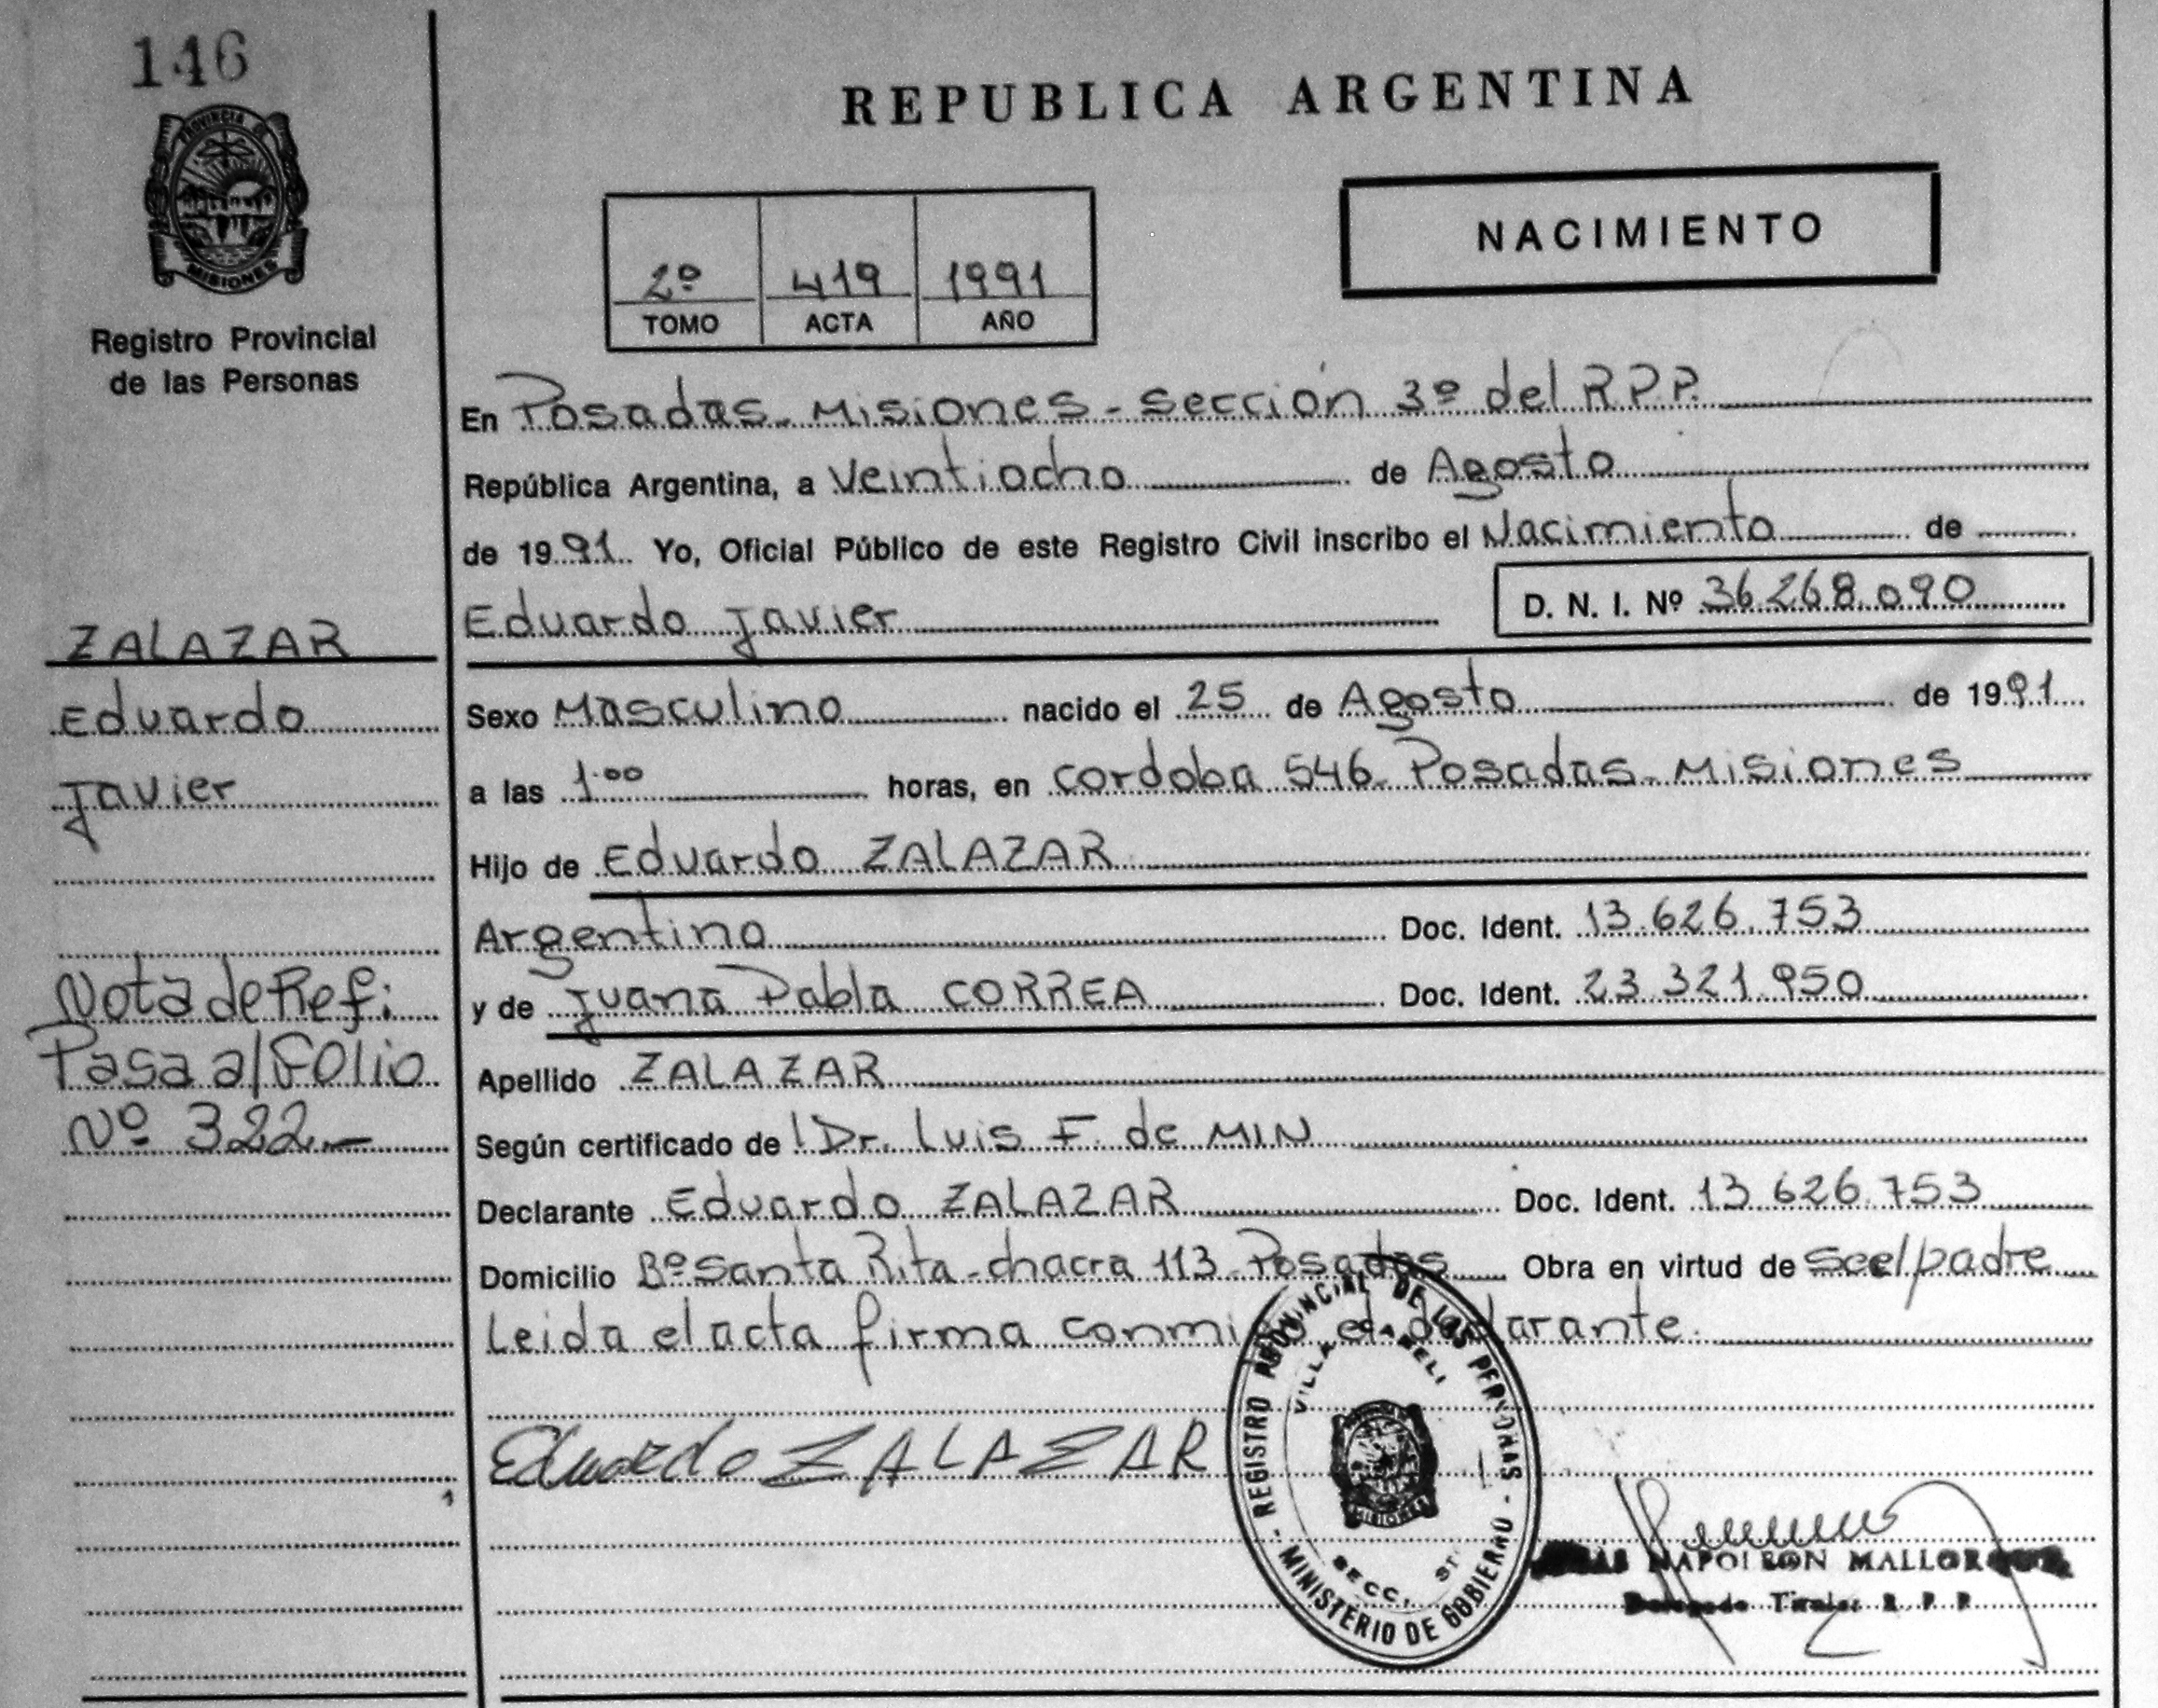 146
PROVINCIA DE
MISIONES
Registro Provincial
de las Personas
ZALAZAR
Eduardo
Javier
Nota de Ref:
Pasa al Folio
Nº 322.-
REPUBLICA ARGENTINA
NACIMIENTO
2º 419 1991
TOMO ACTA AÑO
En Posadas - Misiones - sección 3º del R.P.P.
República Argentina, a Veintiocho de Agosto
de 1991. Yo, Oficial Público de este Registro Civil inscribo el Nacimiento de
Eduardo Javier D. N. I. Nº 36.268.090
Sexo Masculino nacido el 25 de Agosto de 1991
a las 1.00 horas, en Cordoba 546 - Posadas - Misiones
Hijo de Eduardo ZALAZAR
Argentino Doc. Ident. 13.626.753
y de Juana Pabla CORREA Doc. Ident. 23.321.950
Apellido ZALAZAR
Según certificado de Dr. Luis F. de MIN
Declarante Eduardo ZALAZAR Doc. Ident. 13.626.753
Domicilio Bº Santa Rita - chacra 113 - Posadas Obra en virtud de ser el padre
Leida el acta firma conmigo el declarante.
Eduardo ZALAZAR
REGISTRO PROVINCIAL DE LAS PERSONAS
VILLA
SECC.
MISIONES
MINISTERIO DE GOBIERNO
NAPOLEON
Delegado Titular R. P. P.